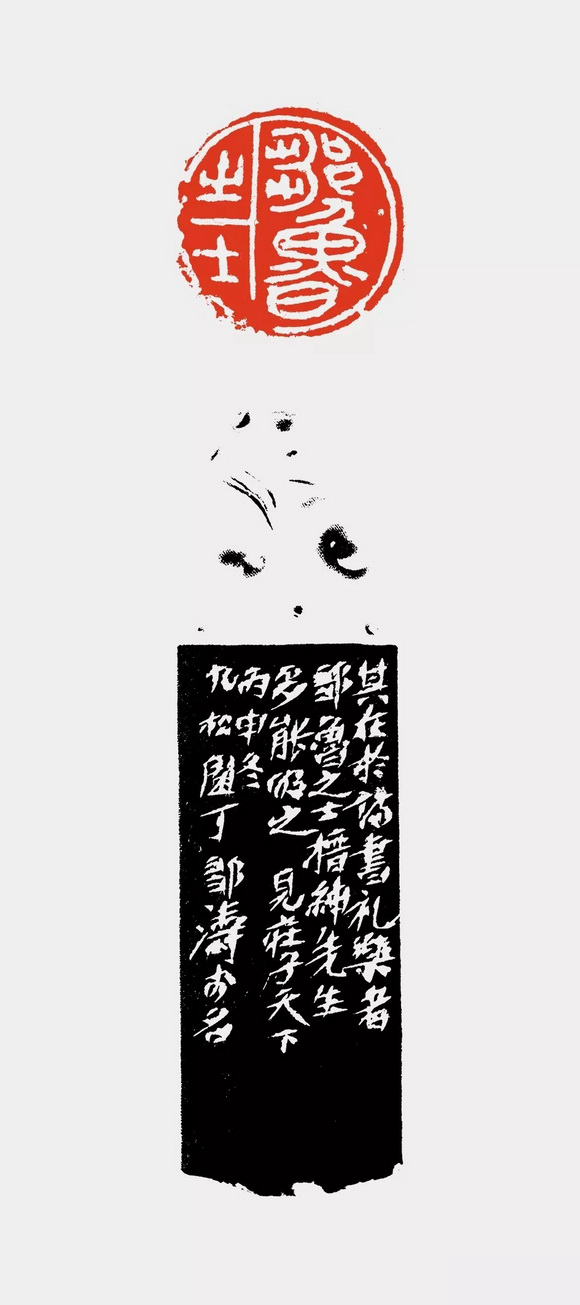 鄒魯
之士
其在於詩書礼樂者
鄒魯之士搢紳先生
多能明之 見莊子天下
丙申冬
九松園丁 鄒濤 名